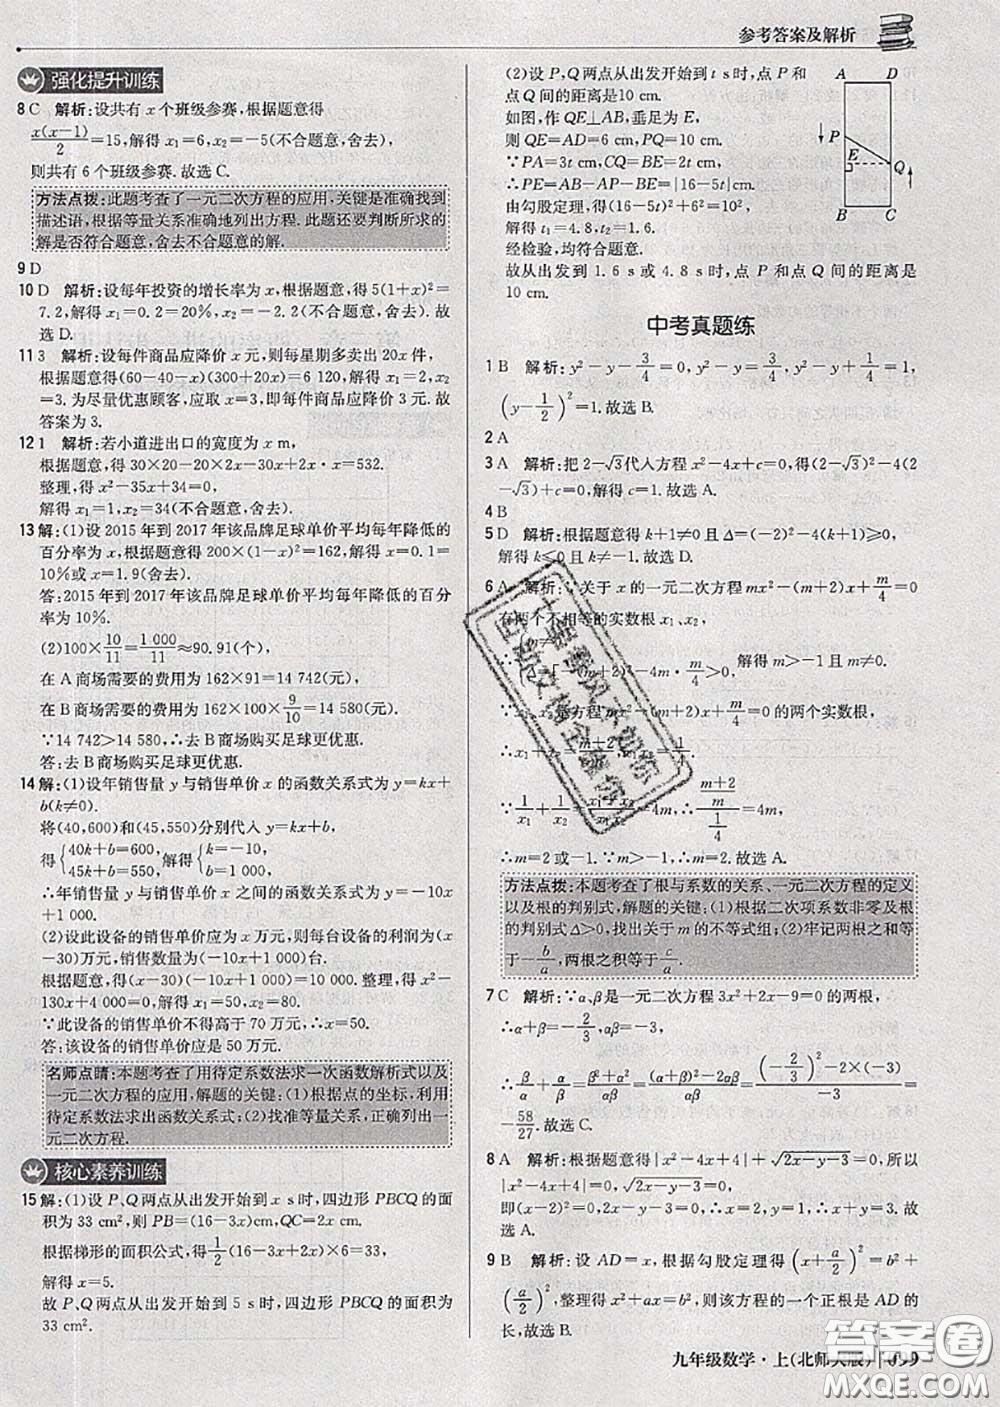 参考答案及解析
强化提升训练
8 C 解析:设共有 x 个班级参赛,根据题意得
x(x−1)/2=15,解得 x₁=6,x₂=−5(不合题意,舍去),
则共有 6 个班级参赛.故选 C.
方法点拨:此题考查了一元二次方程的应用,关键是准确找到
描述语,根据等量关系准确地列出方程.此题还要判断所求的
解是否符合题意,舍去不合题意的解.
9 D
10 D 解析:设每年投资的增长率为 x,根据题意,得 5(1+x)²=
7.2,解得 x₁=0.2=20%,x₂=−2.2(不合题意,舍去),故
选 D.
11 3 解析:设每件商品应降价 x 元,则每星期多卖出 20x 件,
根据题意得(60−40−x)(300+20x)=6 120,解得 x₁=2,x₂
=3.为尽量优惠顾客,应取 x=3,即每件商品应降价 3 元.故
答案为 3.
12 1 解析:若小道进出口的宽度为 x m,
根据题意,得 30×20−20×2x−30·x+2x·x=532.
整理,得 x²−35x+34=0,
解得 x₁=1,x₂=34(不符合题意,舍去).
13 解:(1)设 2015 年到 2017 年该品牌足球单价平均每年降低的
百分率为 x,根据题意,得 200×(1−x)²=162,解得 x=0.1=
10%或 x=1.9(舍去).
答:2015 年到 2017 年该品牌足球单价平均每年降低的百分
率为 10%.
(2)100×10/11=1 000/11≈90.91(个),
在 A 商场需要的费用为 162×91=14 742(元),
在 B 商场需要的费用为 162×100×9/10=14 580(元).
∵14 742>14 580,∴去 B 商场购买足球更优惠.
答:去 B 商场购买足球更优惠.
14 解:(1)设年销售量 y 与销售单价 x 的函数关系式为 y=kx+
b(k≠0).
将(40,600)和(45,550)分别代入 y=kx+b,
得{40k+b=600, 45k+b=550,解得{k=−10, b=1 000,
∴年销售量 y 与销售单价 x 之间的函数关系式为 y=−10x
+1 000.
(2)设此设备的销售单价应为 x 万元,则每台设备的利润为(x
−30)万元,销售数量为(−10x+1 000)台.
根据题意,得(x−30)(−10x+1 000)=10 000.整理,得 x²−
130x+4 000=0,解得 x₁=50,x₂=80.
∵此设备的销售单价不得高于 70 万元,∴x=50.
答:该设备的销售单价应是 50 万元.
名师点睛:本题考查了用待定系数法求一次函数解析式以及
一元二次方程的应用,解题的关键:(1)根据点的坐标,利用
待定系数法求出函数关系式;(2)找准等量关系,正确列出一
元二次方程.
核心素养训练
15 解:(1)设 P、Q 两点从出发开始到 x s时,四边形 PBCQ 的面
积为 33 cm²,则 PB=(16−3x)cm,QC=2x cm.
根据梯形的面积公式,得1/2(16−3x+2x)×6=33,
解得 x=5.
故 P、Q 两点从出发开始到 5 s时,四边形 PBCQ 的面积为
33 cm².
(2)设 P、Q 两点从出发开始到 t s时,点 P 和
点 Q 间的距离是10 cm.
如图,作 QE⊥AB,垂足为 E,
则 QE=AD=6 cm,PQ=10 cm.
∵PA=3t cm,CQ=BE=2t cm,
∴PE=AB−AP−BE=|16−5t|cm.
由勾股定理,得(16−5t)²+6²=10²,
解得 t₁=4.8,t₂=1.6.
经检验,均符合题意.
故从出发到 1.6 s 或 4.8 s时,点 P 和点 Q 间的距离是
10 cm.
A D
P
E
Q
B C
中考真题练
1 B 解析:y²−y−3/4=0,y²−y=3/4,y²−y+1/4=1,
(y−1/2)²=1.故选 B.
2 A
3 A 解析:把 2−√3代入方程 x²−4x+c=0,得(2−√3)²−4(2
−√3)+c=0,解得 c=1.故选 A.
4 B
5 D 解析:根据题意得 k+1≠0 且 Δ=(−2)²−4(k+1)≥0,
解得 k≤0 且 k≠−1.故选 D.
6 A 解析:∵关于 x 的一元二次方程 mx²−(m+2)x+m/4=0
有两个不相等的实数根 x₁、x₂,
m≠0, (m+2)²−4m·m/4>0, 解得 m>−1 且 m≠0.
∵x₁、x₂是方程 mx²−(m+2)x+m/4=0 的两个实数根,
∴x₁+x₂=m+2/m,x₁x₂=1/4.
∵1/x₁+1/x₂=x₁+x₂/x₁x₂=4m,∴(m+2/m)/(1/4)=4m,
∴m=2 或−1.∵m>−1,∴m=2.故选 A.
方法点拨:本题考查了根与系数的关系、一元二次方程的定义
以及根的判别式,解题的关键:(1)根据二次项系数非零及根
的判别式 Δ>0,找出关于 m 的不等式组;(2)牢记两根之和等
于−b/a,两根之积等于c/a.
7 C 解析:∵α、β是一元二次方程 3x²+2x−9=0 的两根,
∴α+β=−2/3,αβ=−3,
∴β/α+α/β=β²+α²/αβ=(α+β)²−2αβ/αβ=(−2/3)²−2×(−3)/−3=
−58/27.故选 C.
8 A 解析:根据题意得|x²−4x+4|+√2x−y−3=0,所以
|x²−4x+4|=0,√2x−y−3=0,
即(x−2)²=0,2x−y−3=0,∴x=2,y=1,∴x+y=3.故
选 A.
9 B 解析:设 AD=x,根据勾股定理得(x+a/2)²=b²+
(a/2)²,整理得 x²+ax=b²,则该方程的一个正根是 AD 的
长,故选 B.
九年级数学·上(北师大版) 099
答案圈
MXQE.COM